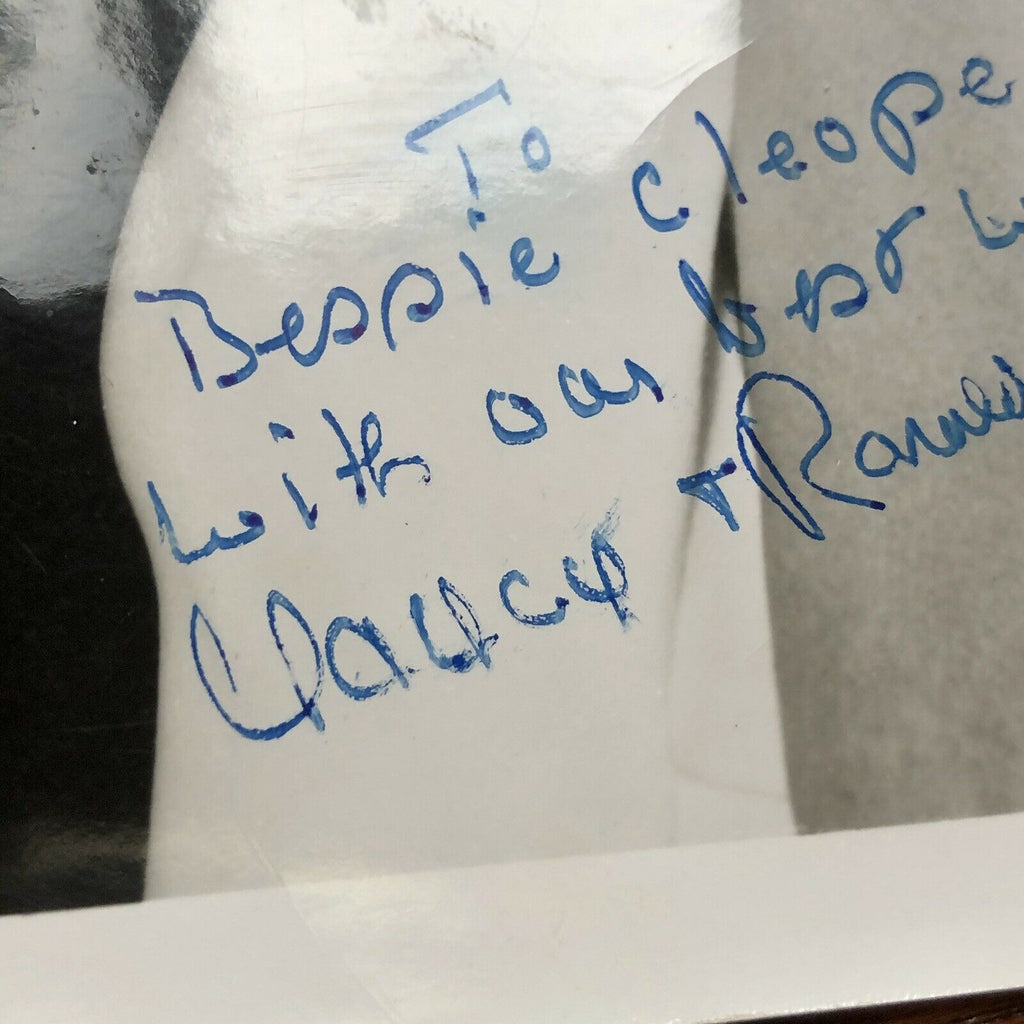 To
Bessie cleope
with our best w
Nancy +